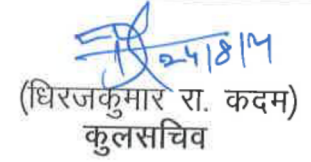 24/8/14
(धिरजकुमार रा. कदम)
कुलसचिव